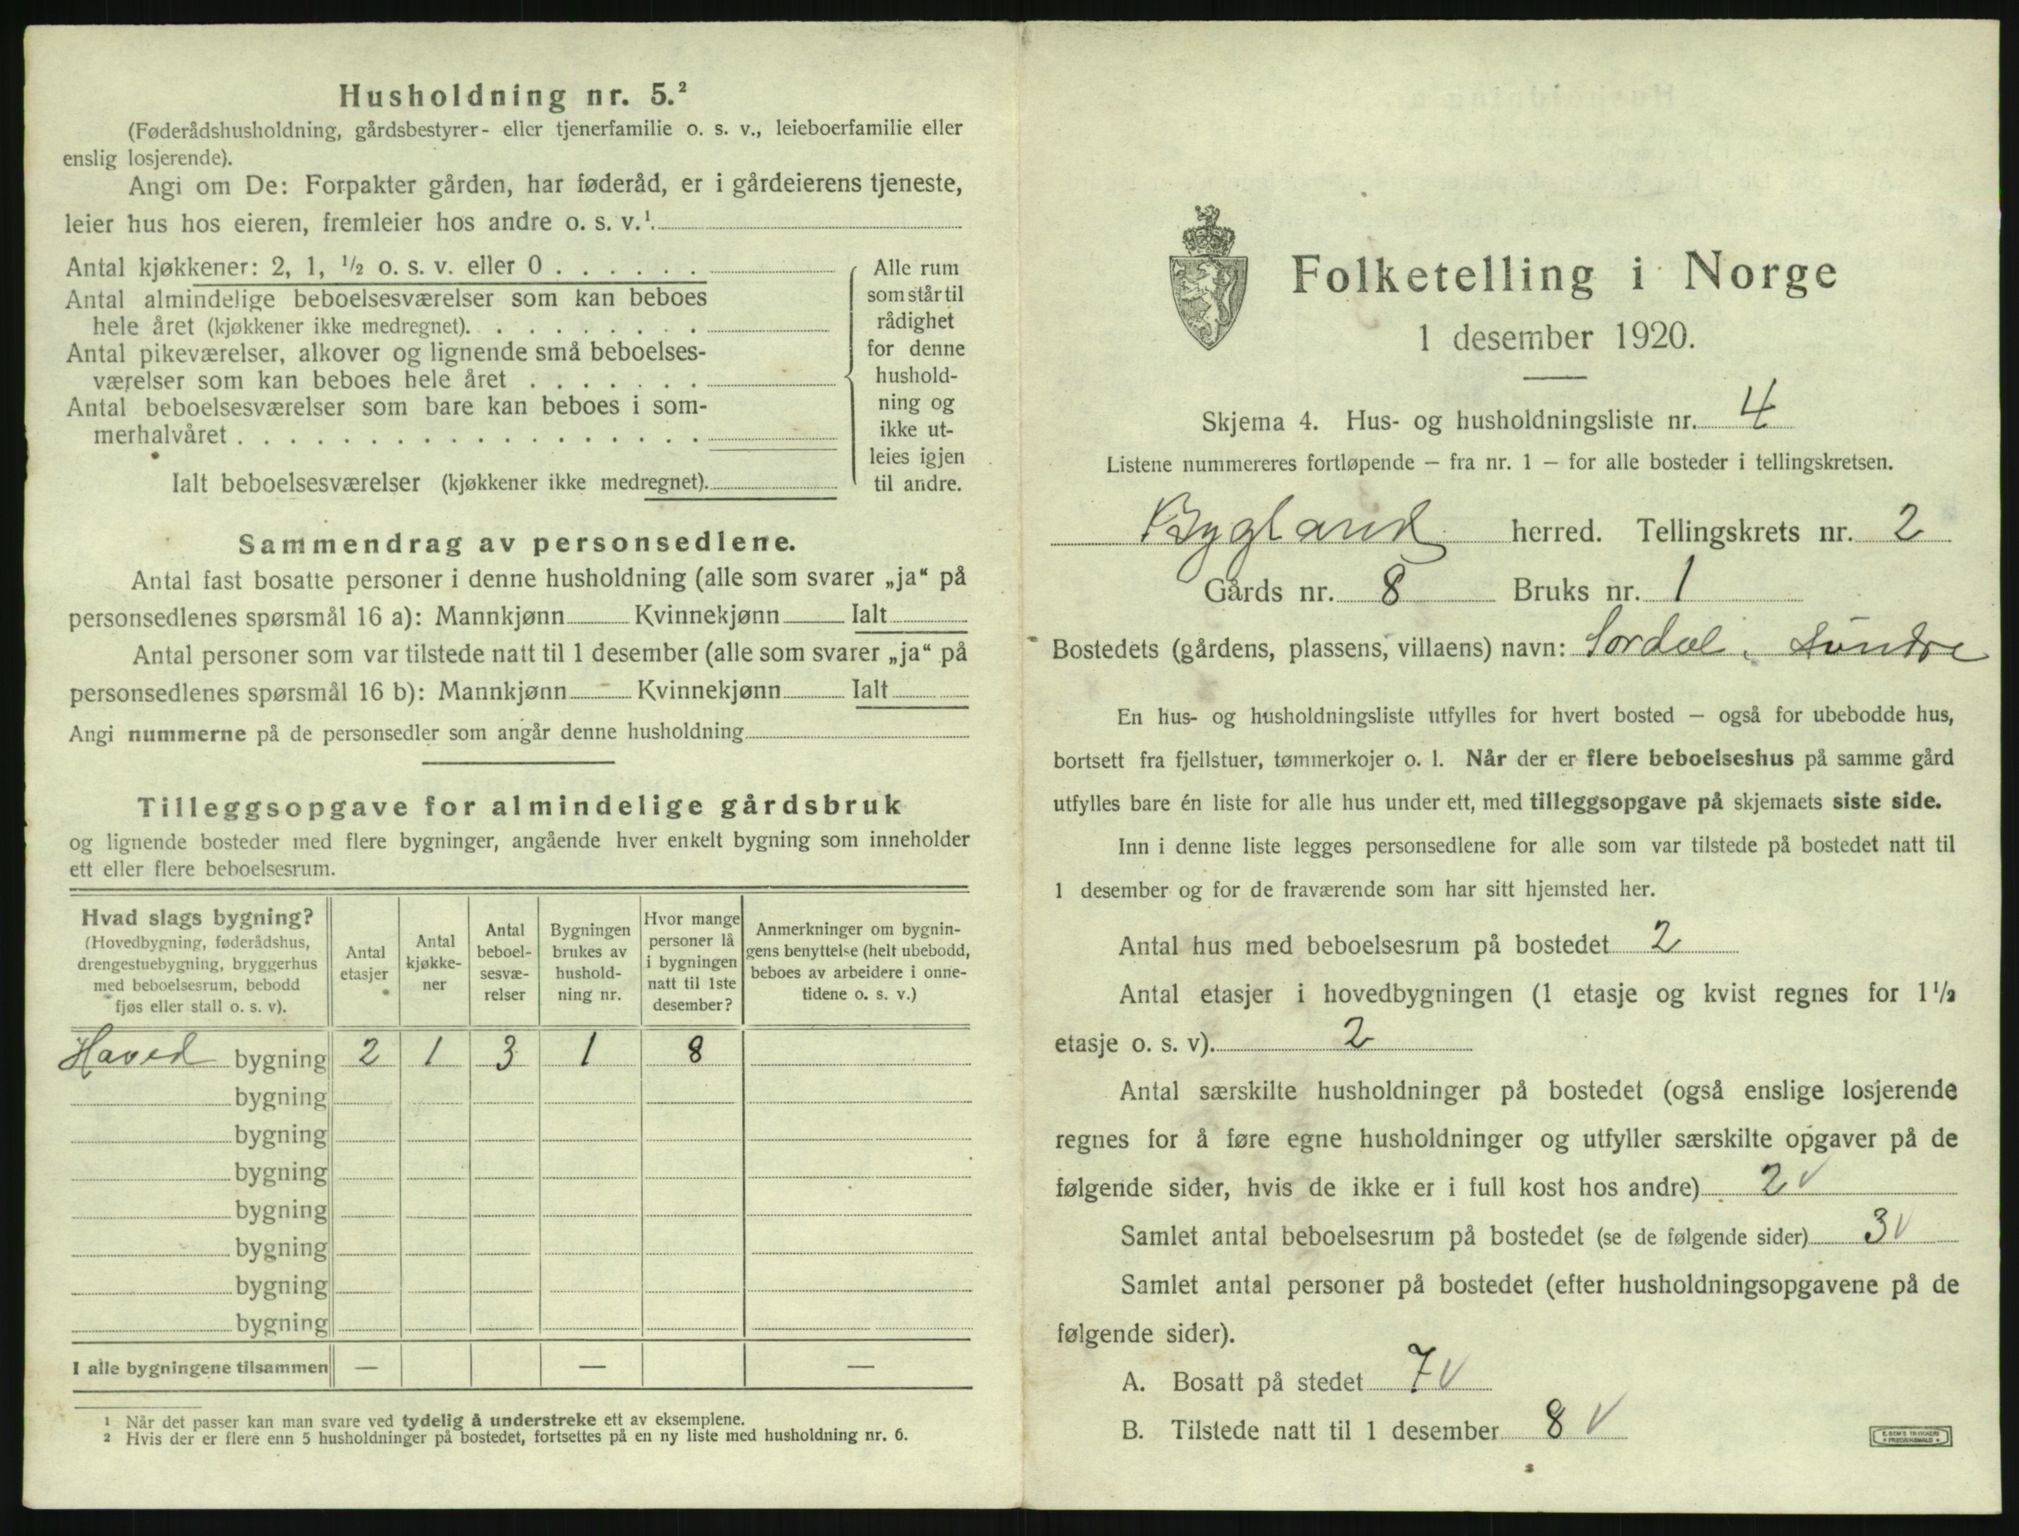 Husholdning nr. 5.²
(Føderådshusholdning, gårdsbestyrer- eller tjenerfamilie o. s. v., leieboerfamilie eller
enslig losjerende).
Angi om De: Forpakter gården, har føderåd, er i gårdeierens tjeneste,
leier hus hos eieren, fremleier hos andre o. s. v.¹
Antal kjøkkener: 2, 1, ½ o. s. v. eller 0 . . . . . .
Antal almindelige beboelsesværelser som kan beboes
hele året (kjøkkener ikke medregnet). . . . . . . . .
Antal pikeværelser, alkover og lignende små beboelses-
værelser som kan beboes hele året . . . . . . .
Antal beboelsesværelser som bare kan beboes i som-
merhalvåret . . . . . . . . . . . . . . . . . .
Ialt beboelsesværelser (kjøkkener ikke medregnet).
Alle rum
som står til
rådighet
for denne
hushold-
ning og
ikke ut-
leies igjen
til andre.
Sammendrag av personsedlene.
Antal fast bosatte personer i denne husholdning (alle som svarer „ja“ på
personsedlenes spørsmål 16 a): Mannkjønn Kvinnekjønn Ialt
Antal personer som var tilstede natt til 1 desember (alle som svarer „ja“ på
personsedlenes spørsmål 16 b): Mannkjønn Kvinnekjønn Ialt
Angi nummerne på de personsedler som angår denne husholdning
Tilleggsopgave for almindelige gårdsbruk
og lignende bosteder med flere bygninger, angående hver enkelt bygning som inneholder
ett eller flere beboelsesrum.
Hvad slags bygning?
(Hovedbygning, føderådshus,
drengestuebygning, bryggerhus
med beboelsesrum, bebodd
fjøs eller stall o. s. v).
Antal
etasjer
Antal
kjøkke-
ner
Antal
beboel-
sesvæ-
relser
Bygningen
brukes av
hushold-
ning nr.
Hvor mange
personer lå
i bygningen
natt til 1ste
desember?
Anmerkninger om bygnin-
gens benyttelse (helt ubebodd,
beboes av arbeidere i onne-
tidene o. s. v.)
Hoved bygning 2 1 3 1 8
bygning
bygning
bygning
bygning
bygning
bygning
bygning
I alle bygningene tilsammen — — —
¹ Når det passer kan man svare ved tydelig å understreke ett av eksemplene.
² Hvis der er flere enn 5 husholdninger på bostedet, fortsettes på en ny liste med husholdning nr. 6.
Folketelling i Norge
1 desember 1920.
Skjema 4. Hus- og husholdningsliste nr. 4
Listene nummereres fortløpende – fra nr. 1 – for alle bosteder i tellingskretsen.
Bygland herred. Tellingskrets nr. 2
Gårds nr. 8 Bruks nr. 1
Bostedets (gårdens, plassens, villaens) navn: Sordal, søndre
En hus- og husholdningsliste utfylles for hvert bosted – også for ubebodde hus,
bortsett fra fjellstuer, tømmerkojer o. l. Når der er flere beboelseshus på samme gård
utfylles bare én liste for alle hus under ett, med tilleggsopgave på skjemaets siste side.
Inn i denne liste legges personsedlene for alle som var tilstede på bostedet natt til
1 desember og for de fraværende som har sitt hjemsted her.
Antal hus med beboelsesrum på bostedet 2
Antal etasjer i hovedbygningen (1 etasje og kvist regnes for 1½
etasje o. s. v). 2
Antal særskilte husholdninger på bostedet (også enslige losjerende
regnes for å føre egne husholdninger og utfyller særskilte opgaver på de
følgende sider, hvis de ikke er i full kost hos andre) 2 √
Samlet antal beboelsesrum på bostedet (se de følgende sider) 3 √
Samlet antal personer på bostedet (efter husholdningsopgavene på de
følgende sider).
A. Bosatt på stedet 7 √
B. Tilstede natt til 1 desember 8 √